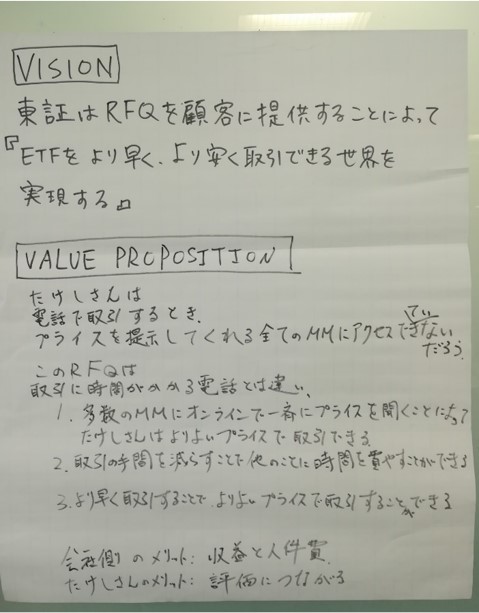 VISION
東証はRFQを顧客に提供することによって
『ETFをより早く、より安く取引できる世界を
実現する』
VALUE PROPOSITION
たけしさんは
電話で取引するとき、
プライスを提示してくれる全てのMMにアクセスできていないだろう
このRFQは
取引に時間がかかる電話とは違い、
1. 多数のMMにオンラインで一斉にプライスを聞くことによって
たけしさんはよりよいプライスで取引できる
2. 取引の手間を減らすことで他のことに時間を費やすことができる
3. より早く取引することで、よりよいプライスで取引することができる
会社側のメリット: 収益と人件費
たけしさんのメリット: 評価につながる